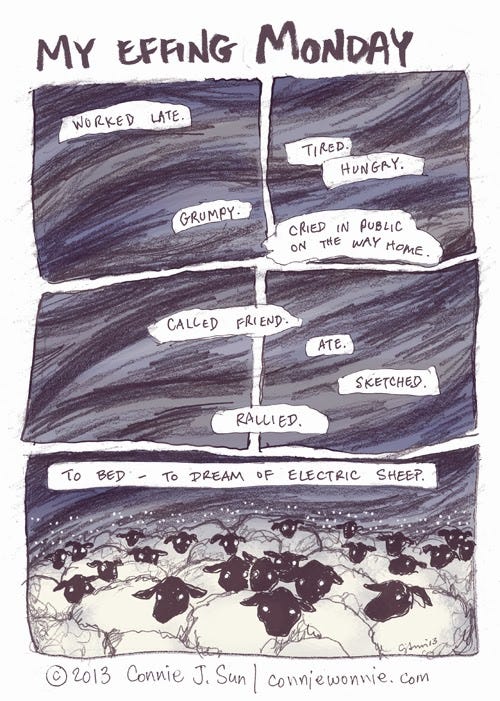 MY EFFING MONDAY
WORKED LATE.
GRUMPY.
TIRED.
HUNGRY.
CRIED IN PUBLIC
ON THE WAY HOME.
CALLED FRIEND.
ATE.
SKETCHED.
RALLIED.
TO BED - TO DREAM OF ELECTRIC SHEEP.
© 2013 Connie J. Sun | conniewonnie.com